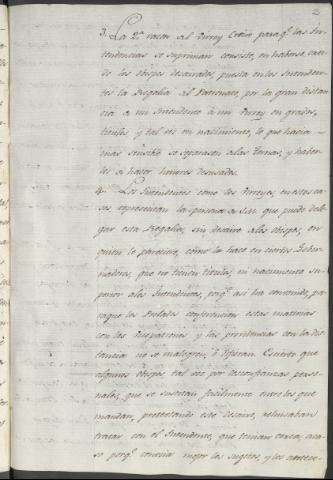 2
3. La 2ª razon al Virrey Croix para qᵉ las In-
tendencias se supriman consiste, en haberse
do los obispos desairados, puesta en los Intenden-
tes la Regalia al Patronato, por la gran distan
cia a un Intendente à un Virrey en grados,
titulos y tal vez en nacimiento, lo que hacia
mas sensible se separasen a las Ternas, y haber-
les a hacer honores
4. Los Intendentes como los Virreyes, en estos ca-
sos representan la persona a S.M. que puede
gar esta Regalia, sin desaire a los obispos, en
quien le pareciere, como lo hace en ciertos Gober-
nadores, que no tienen titulos, ni nacimiento su-
perior a los Intendentes, porqᵉ asi ha convenido, pa-
raque los Prelados en estas materias
con los Vicepatronos y las providencias con la dis-
tancia no se malogren, ò difieran. Es cierto que
algunos obispos tal vez por desconfianzas perso-
nales, que se suscitan facilmente entre los que
mandan, pretextando este desaire, rehusaban
tratar con el Intendente, que tenian cerca, aca-
so porqᵉ conocia mejor los sugetos, y los